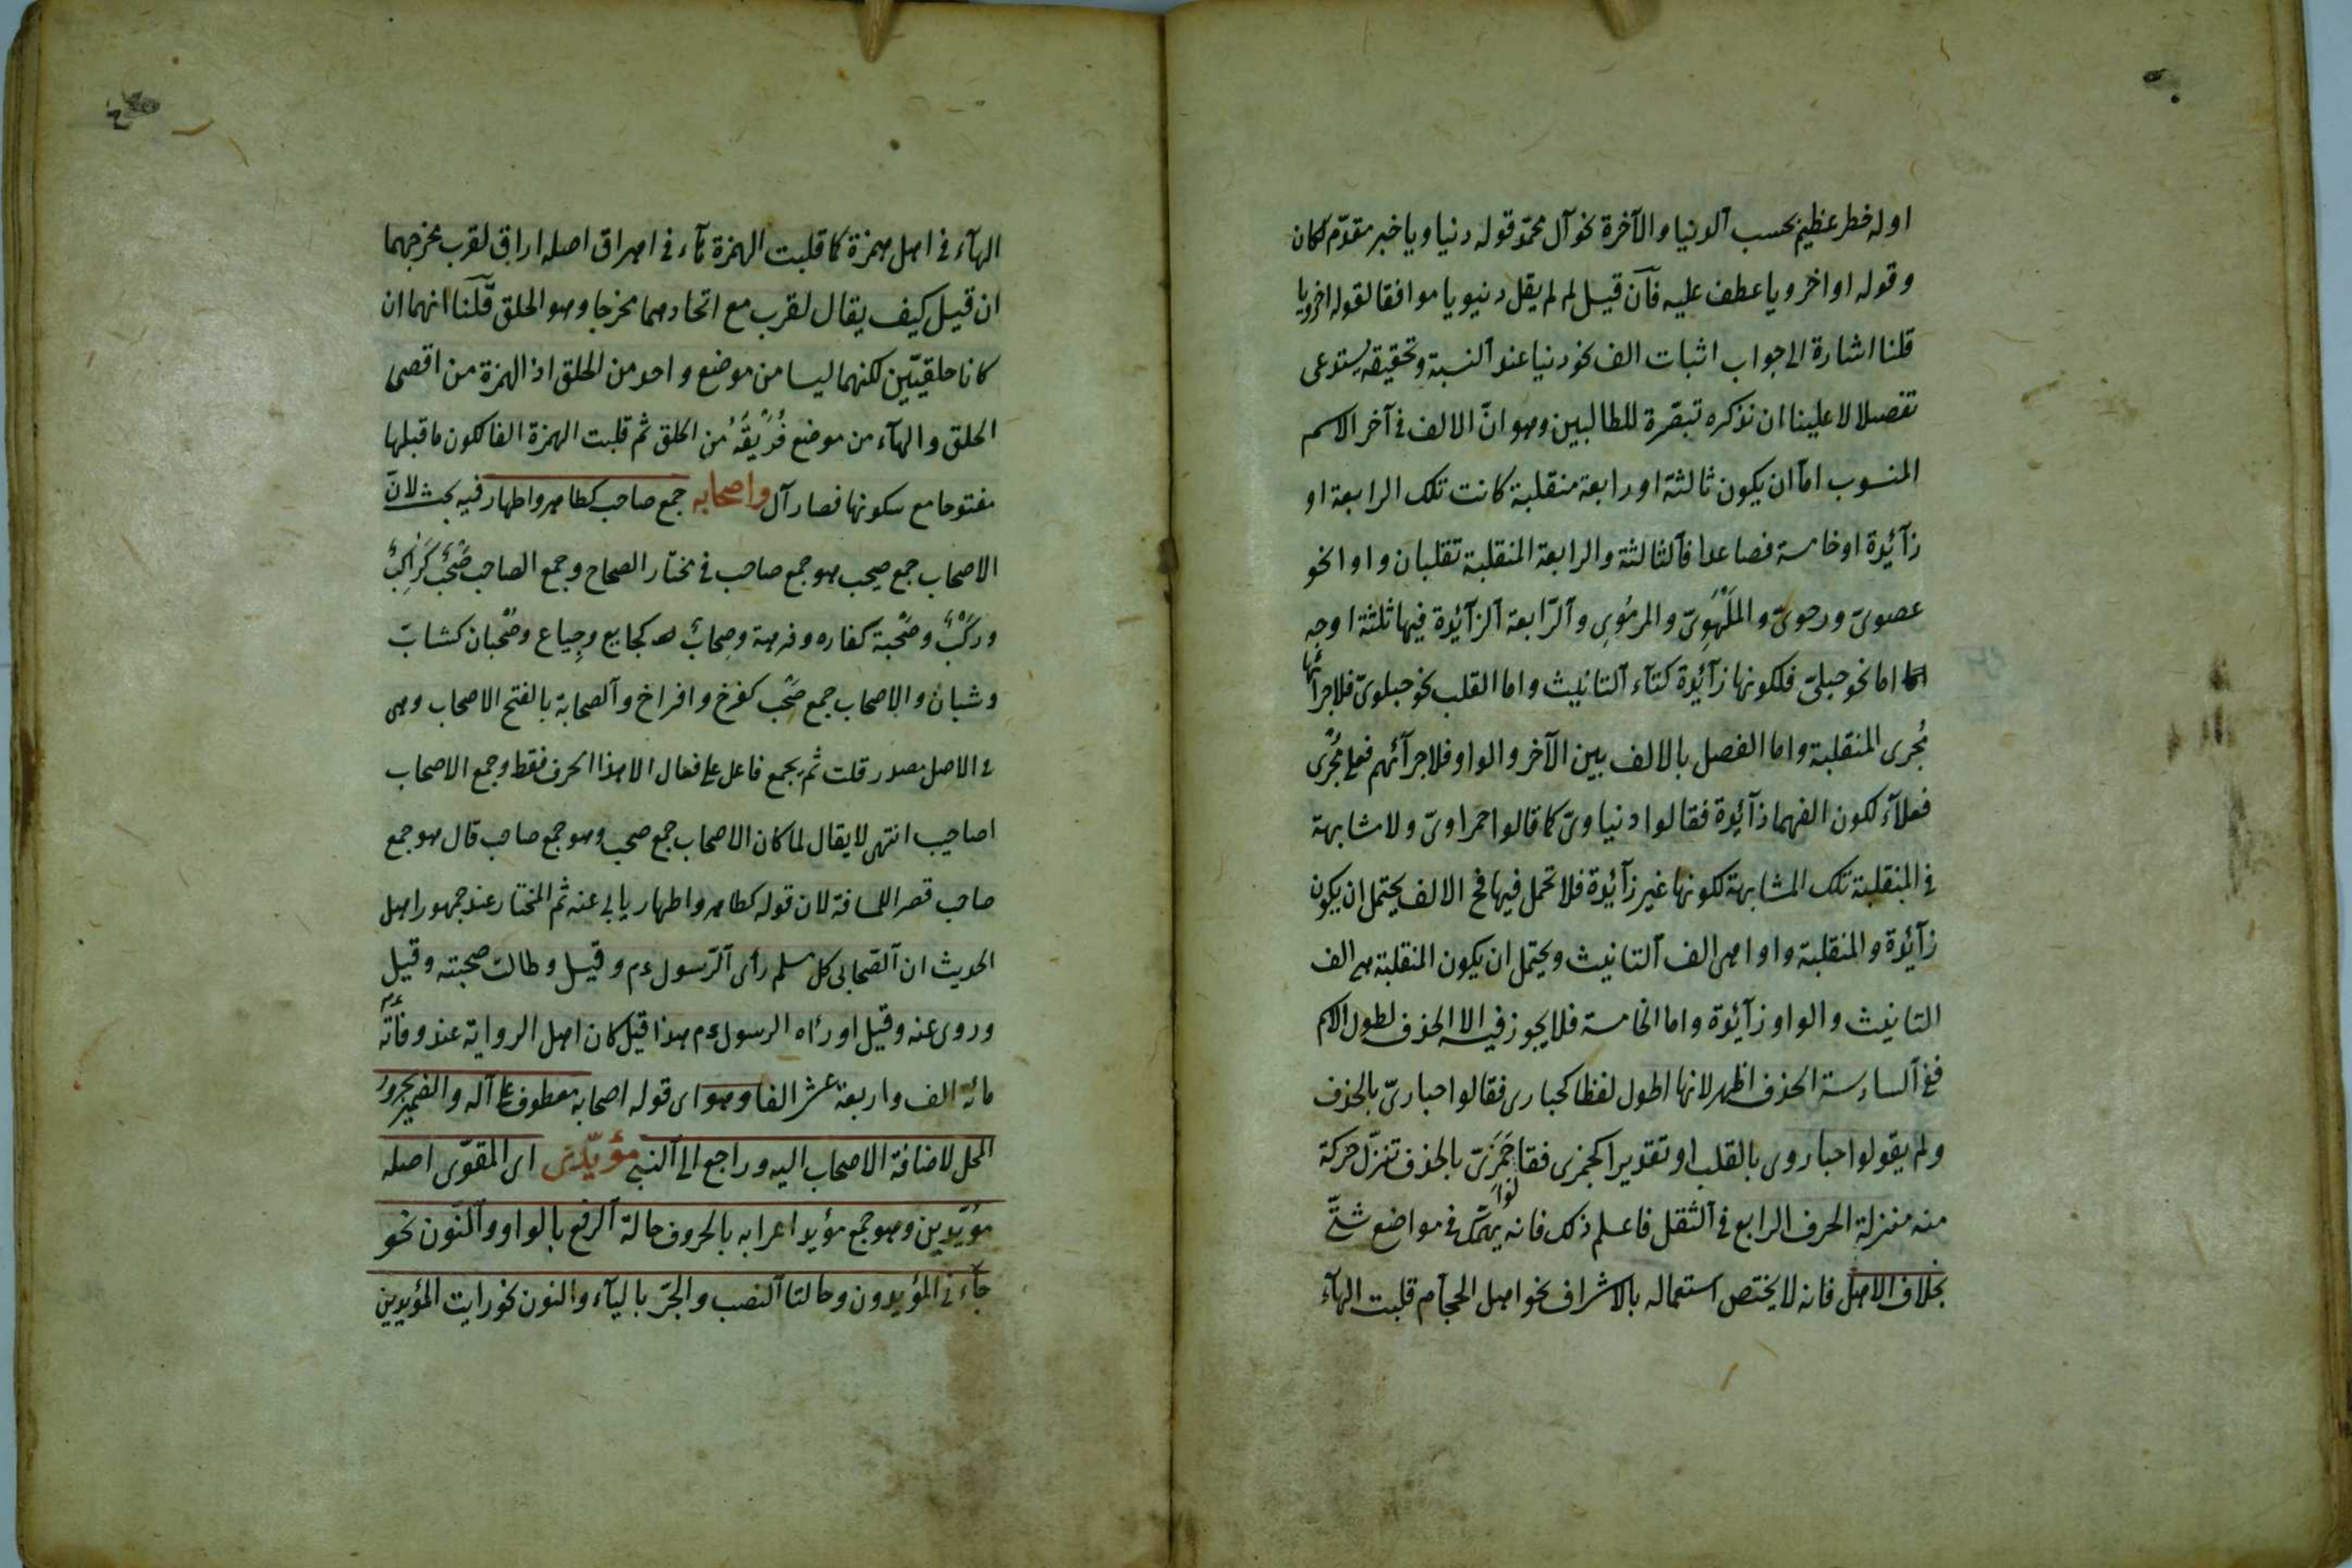 اوله خطر عظيم بحسب آلدنيا والآخرة نحو آل محمّد قوله دنياويا خبر مقدّم لكان
وقوله او اخرويا عطف عليه فآن قيل لم لم يقل دنيويا موافقا لقوله اخرويا
قلنا اشارة الى جواب اثبات الف نحو دنيا عند آلنسبة وتحقيقه يستدعى
تفصلا لا علينا ان نذكره تبصّرة للطالبين وهو انّ الالف فى آخر الاسم
المنسوب امّا ان يكون ثالثة او رابعة منقلبة كانت تلك الرابعة او
زآئدة او خامسة فصاعدا فآلثالثة والرابعة المنقلبة تقلبان واوا نحو
عصوىّ ورحوىّ والمَلْهَوِىّ والمرمَوِى وآلرّابعة آلزآئدة فيها ثلثة اوجه
اما نحو حبلىّ فلكونها زآئدة كتآء آلتانيث واما القلب نحو حبلوىّ فلاجرائها
مُجرى المنقلبة واما الفصل بالالف بين الآخر والواو فلاجرآئهم فعلى مُجْرَى
فعلآء لكون الفهما زآئدة فقالوا دنياوىّ كما قالوا حمراوىّ ولا مشابهة
فى المنقلبة تلك المشابهة لكونها غير زآئدة فلا تحمل فيها فح الالف يحتمل ان يكون
زآئدة والمنقلبة واوا هى الف آلتانيث ويحتمل ان يكون المنقلبة هى الف
التانيث والواو زآئدة واما الخامسة فلا يجوز فيه الا الحذف لطول الاسم
ففى آلسادسة الحذف اظهر لانها اطول لفظا كحبارى فقالوا حبارىّ بالحذف
ولم يقولوا حباروى بالقلب او تقديرا كجمزى فقالوا جَمَزَىّ بالحذف تنزّل حركة
منه منزلة الحرف الرابع فى آلثقل فاعلم ذلك فانه يهمّك فى مواضع شتّى
بخلاف الاهل فانه لا يختص استعماله بالاشراف نحو اهل الحجآم قلبت الهآء
الهآء فى اهل همزة كما قلبت الهمزة هآء فى اهراق اصله اراق لقرب مخرجهما
ان قيل كيف يقال لقرب مع اتحادهما مخرجا وهو الحلق قّلنا انهما ان
كانا حلقيّين لكنهما ليسا من موضع واحد من الحلق اذ الهمزة من اقصى
الحلق والهآء من موضع فُوَيْقَهُ من الحلق ثم قلبت الهمزة الفا لكون ما قبلها
مفتوحا مع سكونها فصار آل واصحابه جمع صاحب كطاهر واطهار فيه بحث لانّ
الاصحاب جمع صحب هو جمع صاحب فى مختار الصحاح وجمع الصاحب صَحْبٌ كَرَاكِبٌ
وركْبٌ وصُحْبة كفاره وفرهة وصِحابٌ كجايع وجِياع وصُحْبان كشابّ
وشبان والاصحاب جمع صَحْب كفرخ وافراخ وآلصحابة بالفتح الاصحاب وهى
فى الاصل مصدر قلت ثم يجمع فاعل على فعال الا هذا الحرف فقط وجمع الاصحاب
اصاحيب انتهى لا يقال لما كان الاصحاب جمع صحب وهو جمع صاحب قال هو جمع
صاحب قصر اللمسافة لان قوله كطاهر واطهار يابى عنه ثم المختار عند جمهور اهل
الحديث ان آلصّحابى كل مسلم رأى آلرّسول عم وقيل وطالت صحبته وقيل
وروى عنه وقيل او رءاه الرسول عم هذا قيل كان اهل الرواية عند وفاته عم
مائة الف واربعة عشر الفا وهو اى قوله اصحابه معطوف على آله والضمير مجرور
المحل لاضافة الاصحاب اليه وراجع الى آلنبى مؤيّدين اى المقوّى اصله
مؤيّدين وهو جمع مؤيد اعرابه بالحروف حالة آلرفع بالواو وآلنّون نحو
جآءنى المؤيدون وحالتا آلنصب والجرّ باليآء والنون نحو رايت المؤيدين